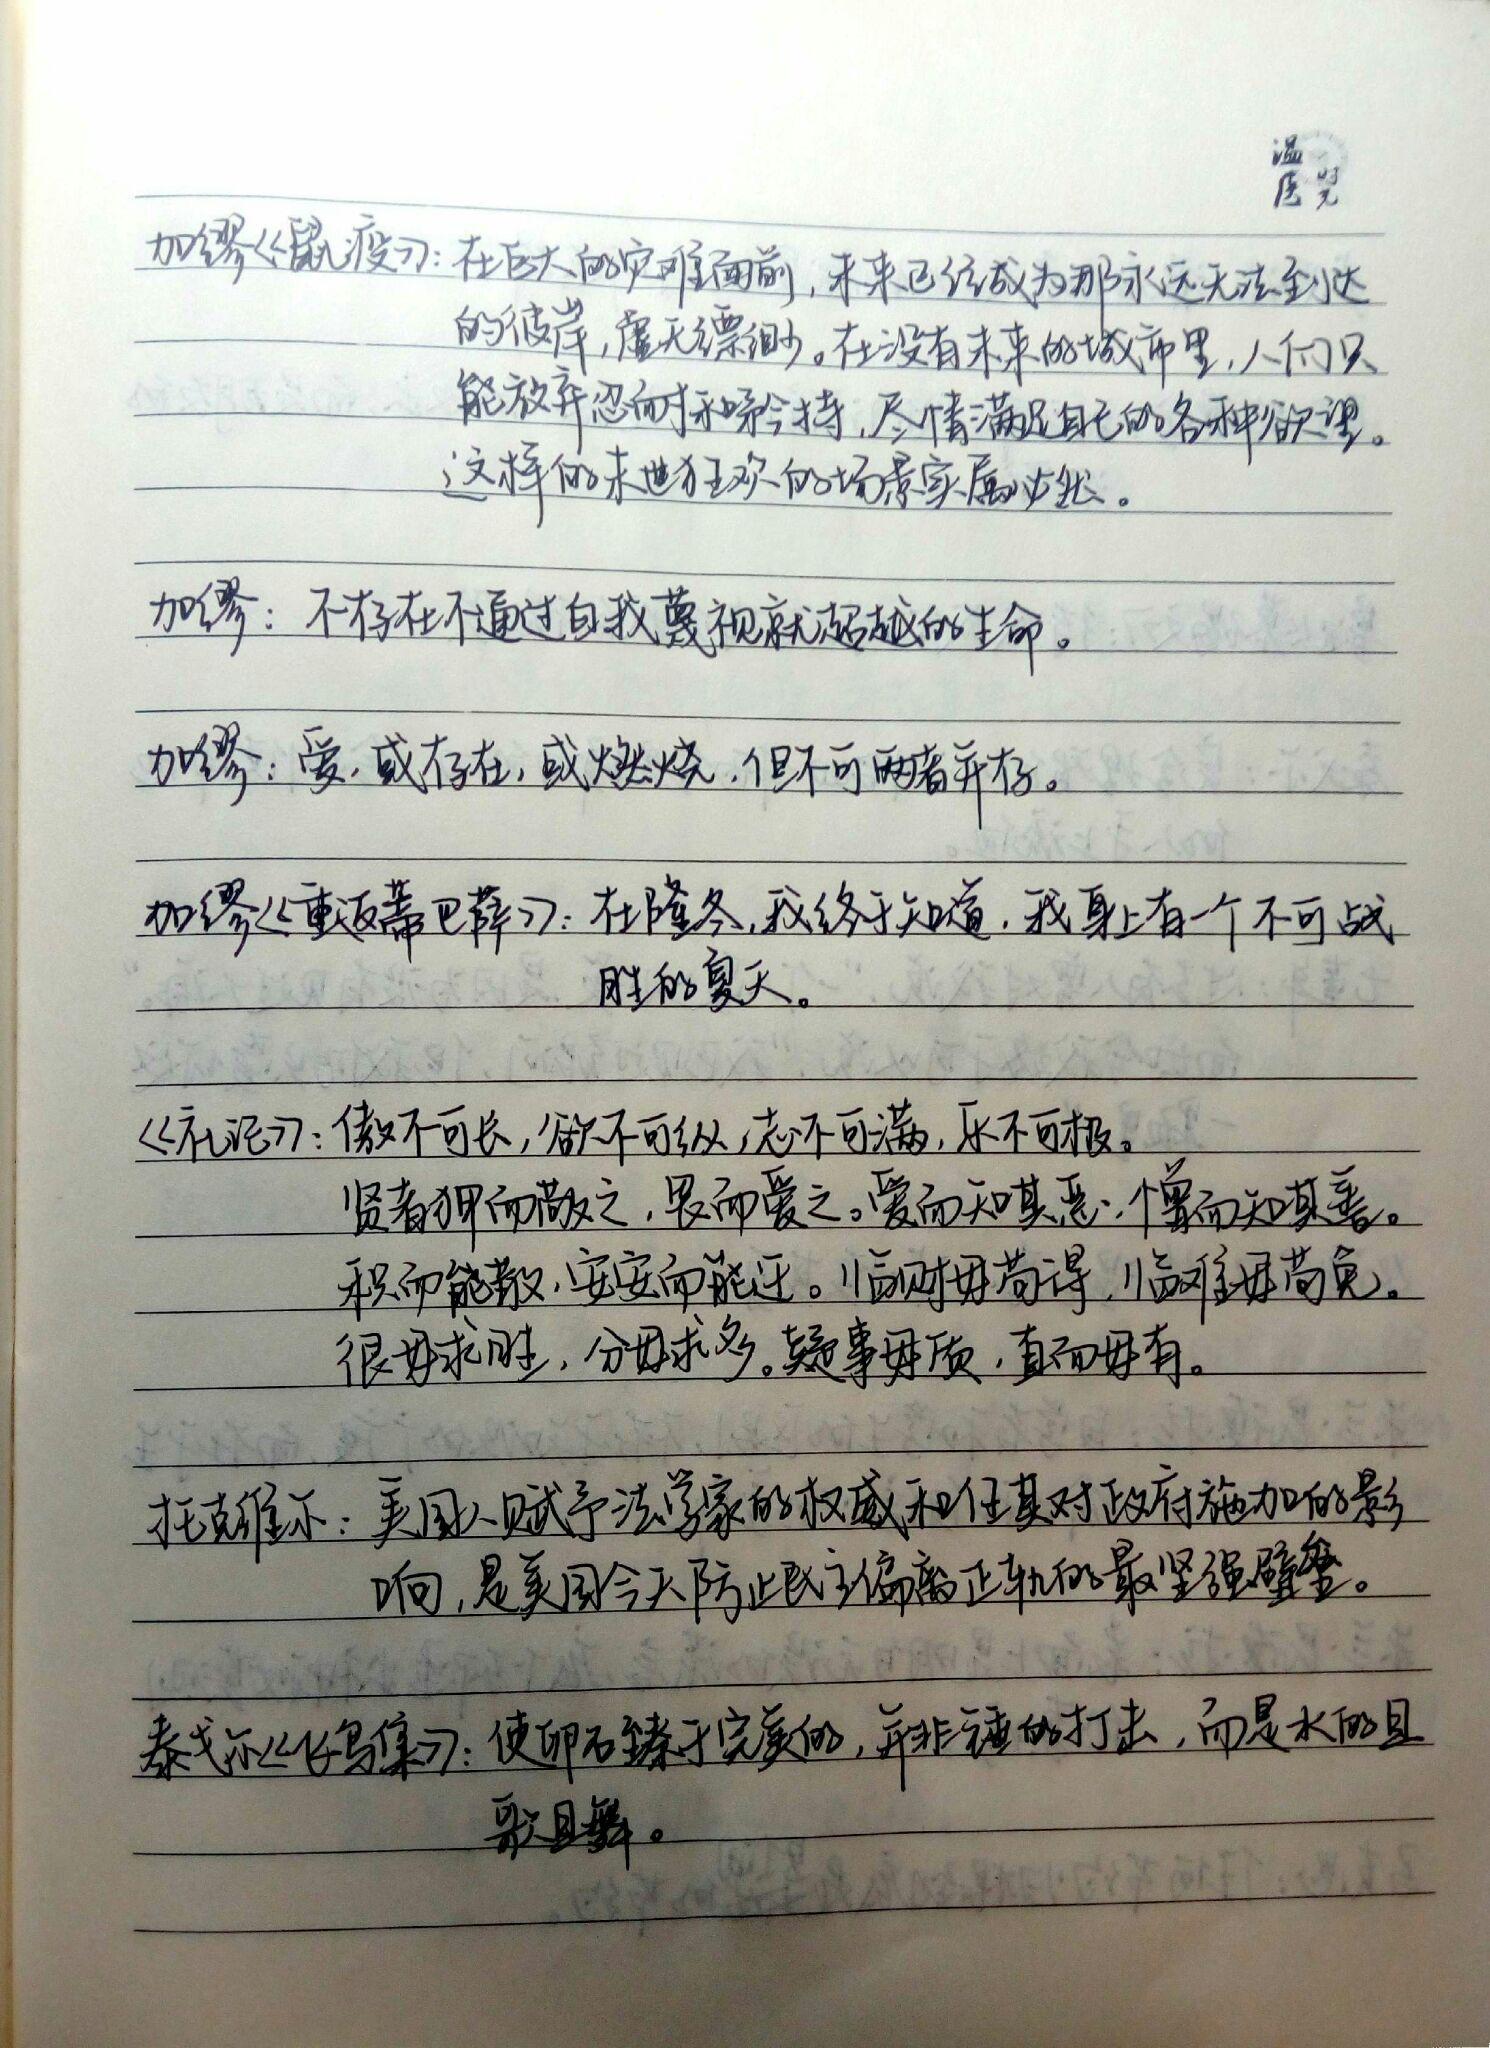 温医时光
加缪《鼠疫》：在巨大的灾难面前，未来已经成为那永远无法到达
的彼岸，虚无缥缈。在没有未来的城市里，人们只
能放弃忍耐和矜持，尽情满足自己的各种欲望。
这样的末世狂欢的场景实属必然。
加缪：不存在不通过自我蔑视就超越的生命。
加缪：爱，或存在，或燃烧，但不可两者并存。
加缪《重返蒂巴萨》：在隆冬，我终于知道，我身上有一个不可战
胜的夏天。
《礼记》：傲不可长，欲不可纵，志不可满，乐不可极。
贤者狎而敬之，畏而爱之。爱而知其恶，憎而知其善。
积而能散，安安而能迁。临财毋苟得，临难毋苟免。
很毋求胜，分毋求多。疑事毋质，直而毋有。
托克维尔：美国人赋予法学家的权威和任其对政府施加的影
响，是美国今天防止民主偏离正轨的最坚强壁垒。
泰戈尔《飞鸟集》：使卵石臻于完美的，并非锤的打击，而是水的且
歌且舞。